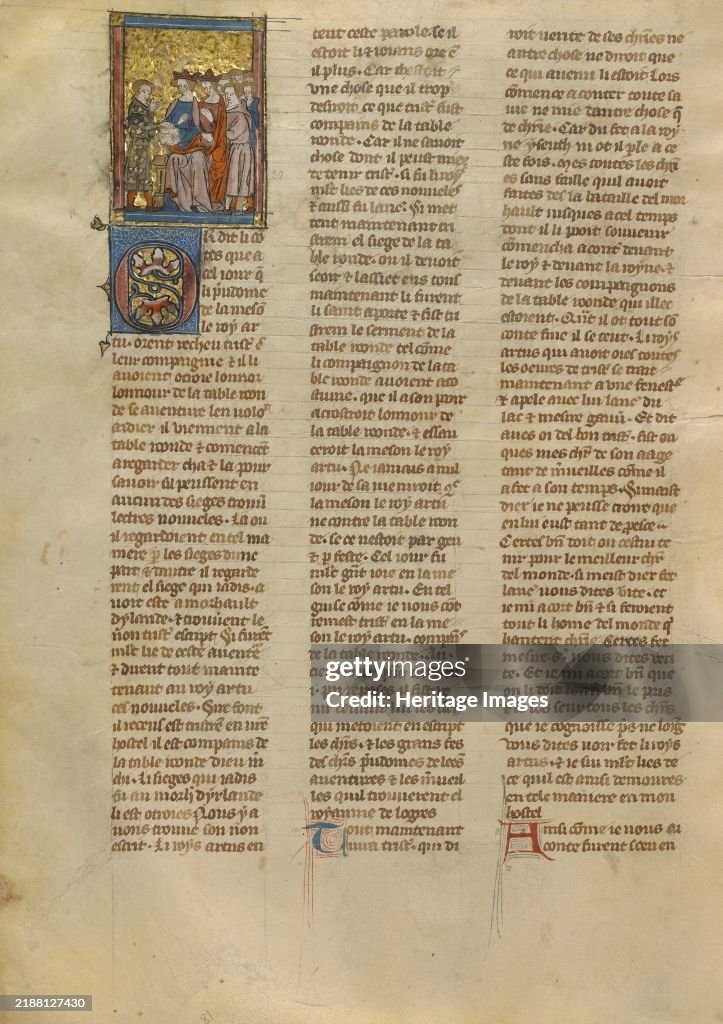 R dit li co
tes que a
cel iour q̄
li p̄udome
de la meso
le roy ar
tu. orent recheu trist̄ ⁊
leur compaignie ⁊ il li
auoient otroie lonnor
lonnour de la table ron
de se auenture len uolo
aidier il viennent a la
table ronde ⁊ comencēt
a regarder cha ⁊ la pour
sauoir sil peussent en
aucun des sieges trouu
lectres nouueles. La ou
il regardoient en tel ma
niere p̄ les sieges dune
part ⁊ dautre il regarde
rent el siege qui iadis a
uoit este a morhault
dyrlande. ⁊ trouuent le
nōn trist̄ escript. Si furēt
ml̄t lie de ceste auentē
⁊ dirent tout mainte
tenant au roy artu
cel nouueles. Sire font
il recheus est tristrē en urē
hostel il est compaīs de
la table ronde dieu m̄
chi. Li sieges qui iadis
fu au morl̄t dyrlande
li est otroies. Nous y a
uons trouue son non
escrit. Li roys artus en
tent ceste parole. se il
estoit li ⁊ ioians ore ē
il plus. Car chestoit
vne chose que il trop
desiroit ce que trist̄ fust
compains de la table
ronde. Car il ne sauoit
chose dont il peust miex
retenir trist̄. si fu li roys
ml̄t lies de ces nouueles
⁊ aussi fu lanc̄. Si met
tent maintenant tri
strem el siege de la ta
ble ronde. ou il deuoit
seoir ⁊ lassiet ens tous
maintenant li furent
li saint aporte ⁊ fist tri
strem le serment de la
table ronde tel cōme
li compaignon de la ta
ble ronde auoient aco
stume. que il a son pooir
acrostroit lonnour de
la table ronde. ⁊ essau
ceroit la meson le roy
artu. Ne iamais a nul
iour de sa vie niroit
la meson le roy artu
ne contre la table ron
de. se ce nestoit par gieu
⁊ p̄ feste. Cel iour fu
ml̄t grāt ioie en la me
son le roy artu. En tel
guise cōme ie uous cōt
remest trist̄ en la me
son le roy artu. compaīs
de la table ronde.
qui metoient en escript
les ch̄rs. ⁊ les grans fes
des ch̄rs p̄udomes de lees
auentures ⁊ les m̄ueil
les quil trouuerent el
royaume de logres
Tout maintenant
trist̄. qui di
roit verite de ses ch̄ries ne
autre chose ne diroit que
ce qui auenu li estoit lors
cōmence a conter toute sa
vie ne mie dautre chose q̄
de ch̄rie. Car du fet a la roy
ne yseuth ni ot il ple a ce
ste fois. Mes toutes les ch̄ri
es sans faille quil auoit
faites des la bataille del mor
hault iusques a cel temps
dont il li pooit souuenir
cōmencha a contē deuant
le roy ⁊ deuant la royne. ⁊
deuant les compaignons
de la table ronde qui illec
estoient. Qūt il ot tout sō
conte fine il se teut. Li roys
artus qui auoit oies toutes
les oeures de trist̄ se trait
maintenant a une fenest
⁊ apele auec lui lanc̄ du
lac ⁊ mesire gauū. Et dit
aues oi del bon trist̄. fist on
ques mes ch̄r de son aage
tant de m̄ueilles cōme il
a fet a son temps. Si maist
diex ie ne peusse croire que
en lui eust tant de pesce.
Certes bn̄ doit on cestui te
nir pour le meilleur ch̄r
del monde. si meist diex fet
lanc̄ uous dites voir. et
ie mi acort bn̄ ⁊ si feroient
tout li home del monde q̄
hantent ch̄rie. Certes fet
mesire G. uous dites veri
te. Et ie mi acort bn̄ que
en li doit donēr le pris
seur tous les ch̄rs
que ie cognoisse p̄s ne loīg
vous dites uoir fet li roys
artus. ⁊ ie sui ml̄t lies de
ce quil est ainsi demoures
en tele maniere en mon
hostel
Ainsi cōme ie uous ai
conte furent sceu en
gettyimages
Credit: Heritage Images
2188127430